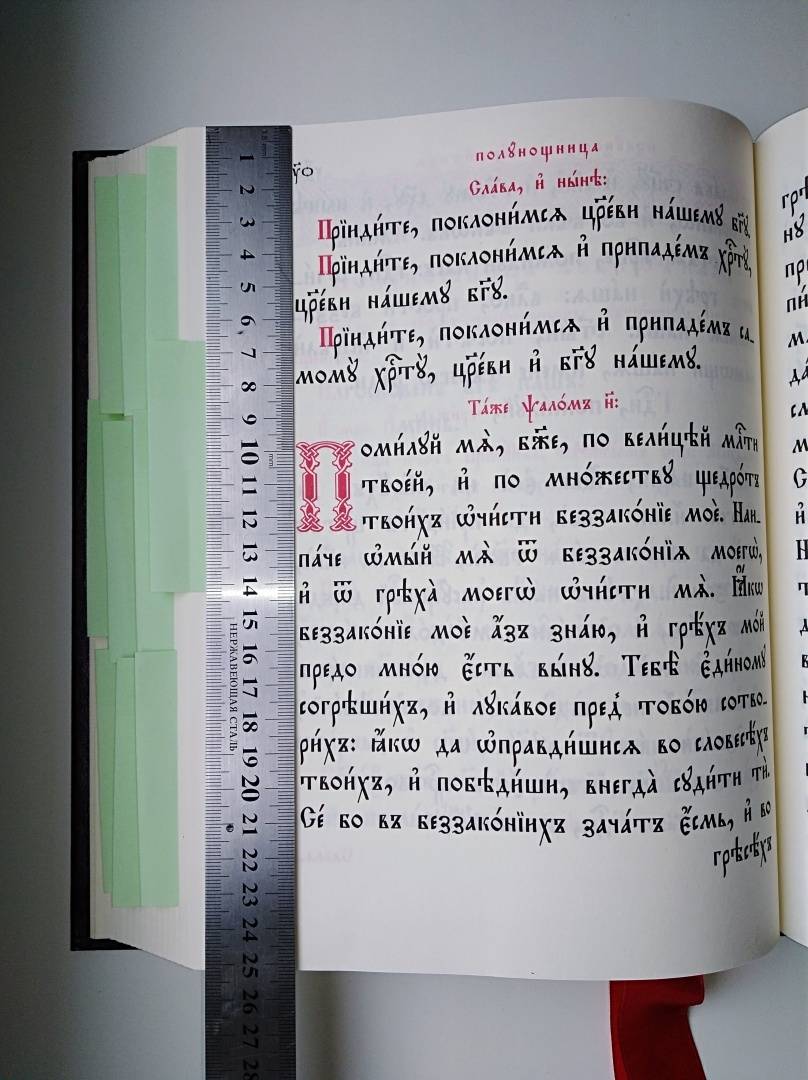 полꙋнощница
Сла́ва, и҆ ны́нѣ:
Прїиди́те, поклони́мсѧ цр҃е́ви на́шемꙋ бг҃ꙋ.
Прїиди́те, поклони́мсѧ и҆ припаде́мъ хрⷭ҇тꙋ̀,
цр҃е́ви на́шемꙋ бг҃ꙋ.
Прїиди́те, поклони́мсѧ и҆ припаде́мъ са_
момꙋ̀ хрⷭ҇тꙋ̀, цр҃е́ви и҆ бг҃ꙋ на́шемꙋ.
Та́же ѱало́мъ н҃:
Поми́лꙋй мѧ̀, бж҃е, по вели́цѣй млⷭ҇ти
твое́й, и҆ по мно́жествꙋ щедро́тъ
твои́хъ ѡ҆чи́сти беззако́нїе моѐ. Наи_
па́че ѡ҆мы́й мѧ̀ ѿ беззако́нїѧ моегѡ̀,
и҆ ѿ грѣха̀ моегѡ̀ ѡ҆чи́сти мѧ̀. Ꙗ҆́кѡ
беззако́нїе моѐ а҆́зъ зна́ю, и҆ грѣ́хъ мо́й
предо мно́ю є҆́сть вы́нꙋ. Тебѣ̀ є҆ди́номꙋ
согрѣши́хъ, и҆ лꙋка́вое пред̾ тобо́ю сотво_
ри́хъ: ꙗ҆́кѡ да ѡ҆правди́шисѧ во словесѣ́хъ
твои́хъ, и҆ побѣди́ши, внегда̀ сꙋди́ти тѝ.
Се́ бо въ беззако́нїихъ зача́тъ є҆́смь, и҆ во
грѣсѣ́хъ
1 2 3 4 5 6 7 8 9 10 11 12 13 14 15 16 17 18 19 20 21 22 23 24 25 26 27 28
mm
НЕРЖАВЕЮЩАЯ СТАЛЬ